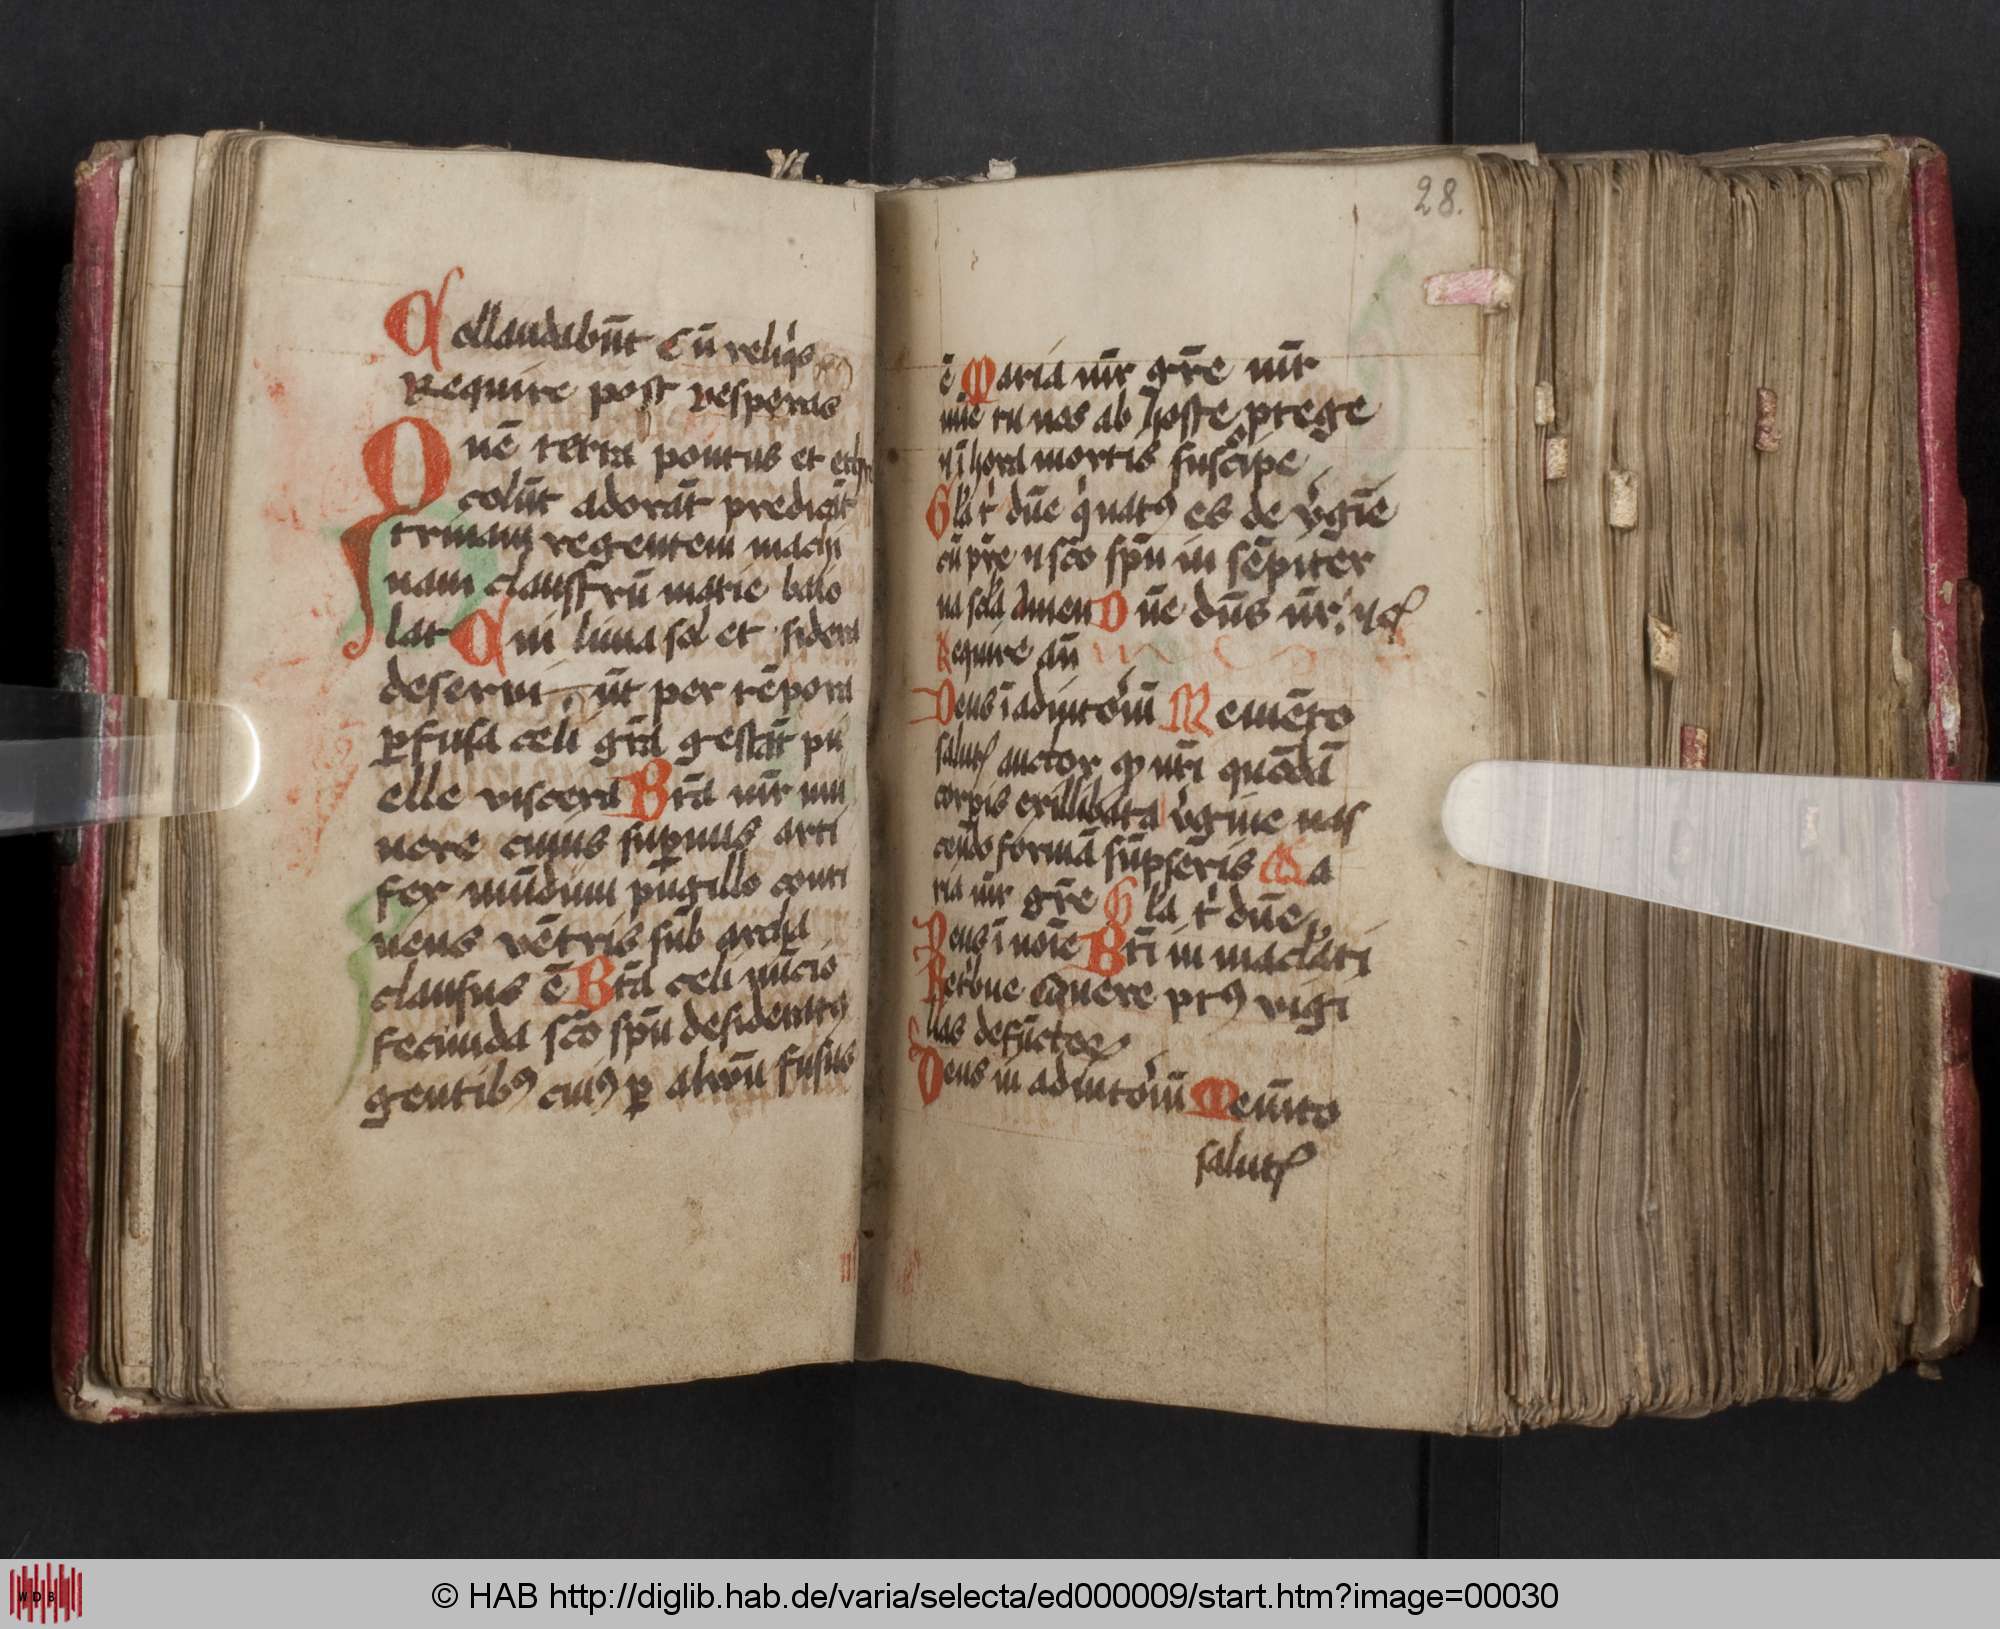 Collaudabūt Cū reliqͥs
Require post vesperas
Quē terra pontus et ethe
colūt adorāt predicāt
trinam regentem machi
nam claustrū marie baio
lat Cui luna sol et sidera
deserui ūt per tēpora
ꝑfusa celi gr̄a gestāt pu
elle viscera Bt̄a mr̄ mu
nere cuius suꝑnus arti
fex mūdum pūgillo conti
nens vētris sub archa
clausus ē Bt̄a celi nūcio
fecunda sc̄o spū desideratꝰ
gentibꝰ cuiꝰ ꝑ alvū fusus
28.
ē Maria mr̄ gr̄e mr̄
mīe tu nos ab hoste ꝓtege
⁊ ī hora mortis suscipe
Gla tͥ dn̄e qͥ natꝰ es de vͥgīe
cū pr̄e ⁊ sc̄o spū in sēpiter
na sc̄la Amen Dn̄e dn̄s nr̄ ⁊cͤ
Require an̄
Deus ī adiutoͥiū Memēto
salutꝭ auctor ꝙ nr̄i quōdā
corpis exillibata vͥgine nas
cendo formā sūpseris Ma
ria mr̄ gr̄e Gla tͥ dn̄e
Deus ī noīe Bt̄i in maclāti
Retͥbue Cavere ptꝰ vigi
lias defūctoꝝ
Deus in adiutoͥiū Memīto
salutꝭ
WDB
© HAB http://diglib.hab.de/varia/selecta/ed000009/start.htm?image=00030